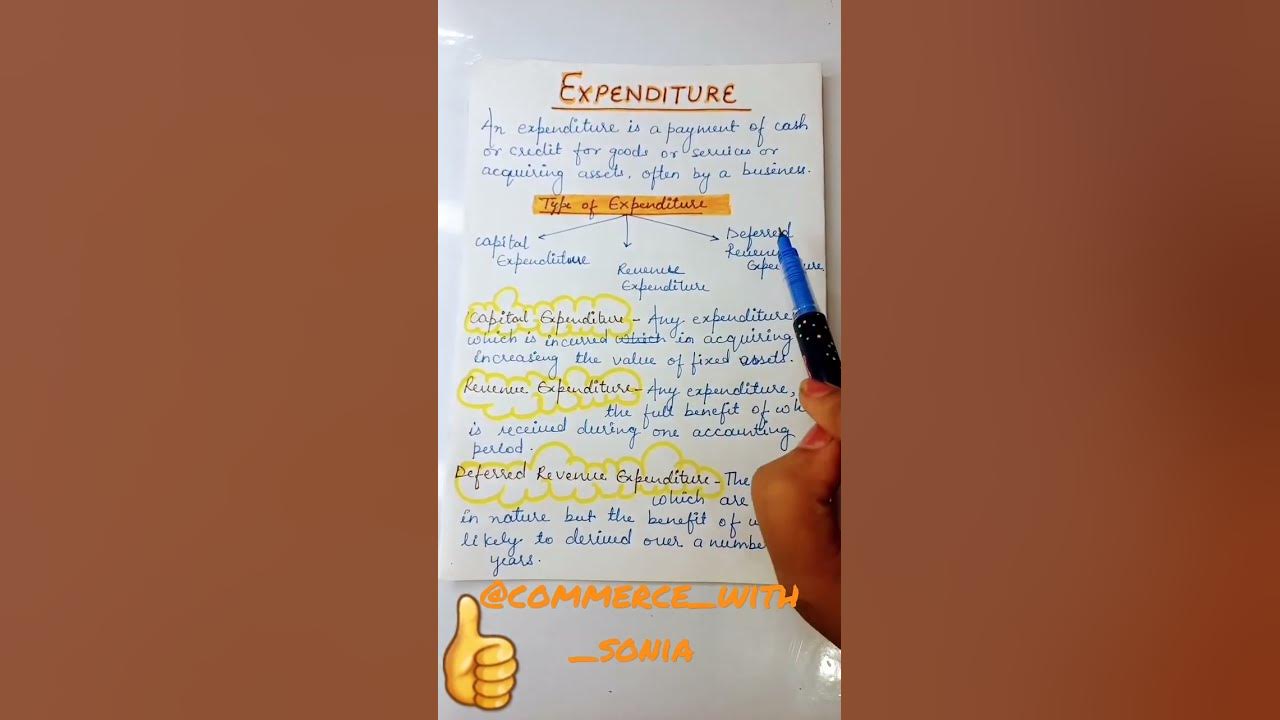 EXPENDITURE
An expenditure is a payment of cash
or credit for goods or services or
acquiring assets, often by a business.
Type of Expenditure
Capital
Expenditure
Revenue
Expenditure
Deferred
Revenue
Capital Expenditure - Any expenditure
which is incurred which in acquiring
increasing the value of fixed assets.
Revenue Expenditure - Any expenditure,
the full benefit of
is received during one accounting
period.
Deferred Revenue Expenditure - The
which are
in nature but the benefit of
likely to derived over a number
years.
@COMMERCE_WITH
_SONIA